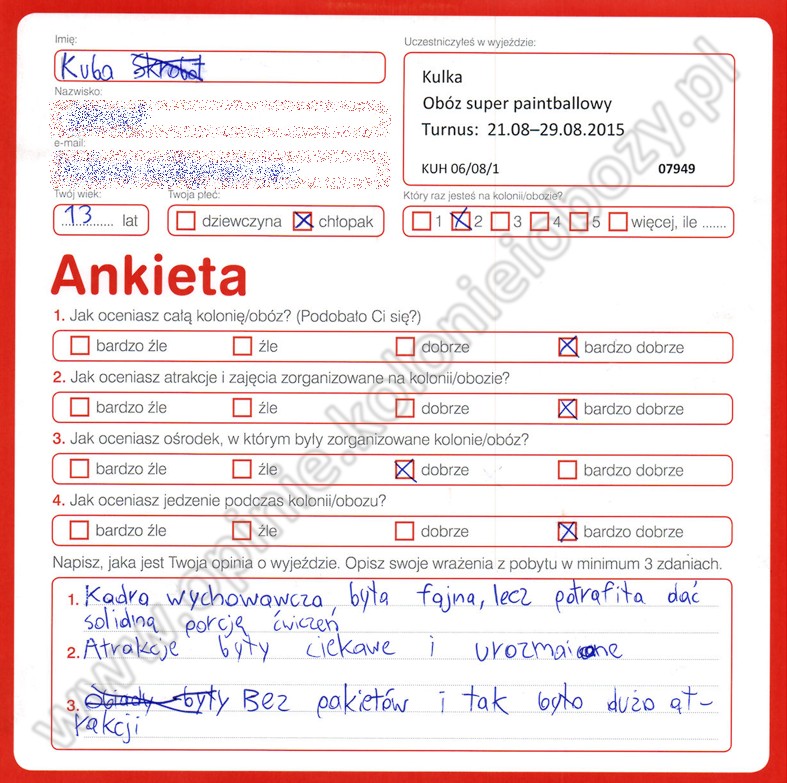 Imię:
Kuba
Nazwisko:
e-mail:
Twój wiek:
13 lat
Twoja płeć:
dziewczyna chłopak
Uczestniczyłeś w wyjeździe:
Kulka
Obóz super paintballowy
Turnus: 21.08–29.08.2015
KUH 06/08/1 07949
Który raz jesteś na kolonii/obozie?
1 2 3 4 5 więcej, ile .......
Ankieta
1. Jak oceniasz całą kolonię/obóz? (Podobało Ci się?)
bardzo źle źle dobrze bardzo dobrze
2. Jak oceniasz atrakcje i zajęcia zorganizowane na kolonii/obozie?
bardzo źle źle dobrze bardzo dobrze
3. Jak oceniasz ośrodek, w którym były zorganizowane kolonie/obóz?
bardzo źle źle dobrze bardzo dobrze
4. Jak oceniasz jedzenie podczas kolonii/obozu?
bardzo źle źle dobrze bardzo dobrze
Napisz, jaka jest Twoja opinia o wyjeździe. Opisz swoje wrażenia z pobytu w minimum 3 zdaniach.
1. Kadra wychowawcza była fajna, lecz potrafiła dać
solidną porcję ćwiczeń
2. Atrakcje były ciekawe i urozmaicone
3. Obiady były Bez pakietów i tak było dużo at-
rakcji
www.opinie.kolonieiobozy.pl